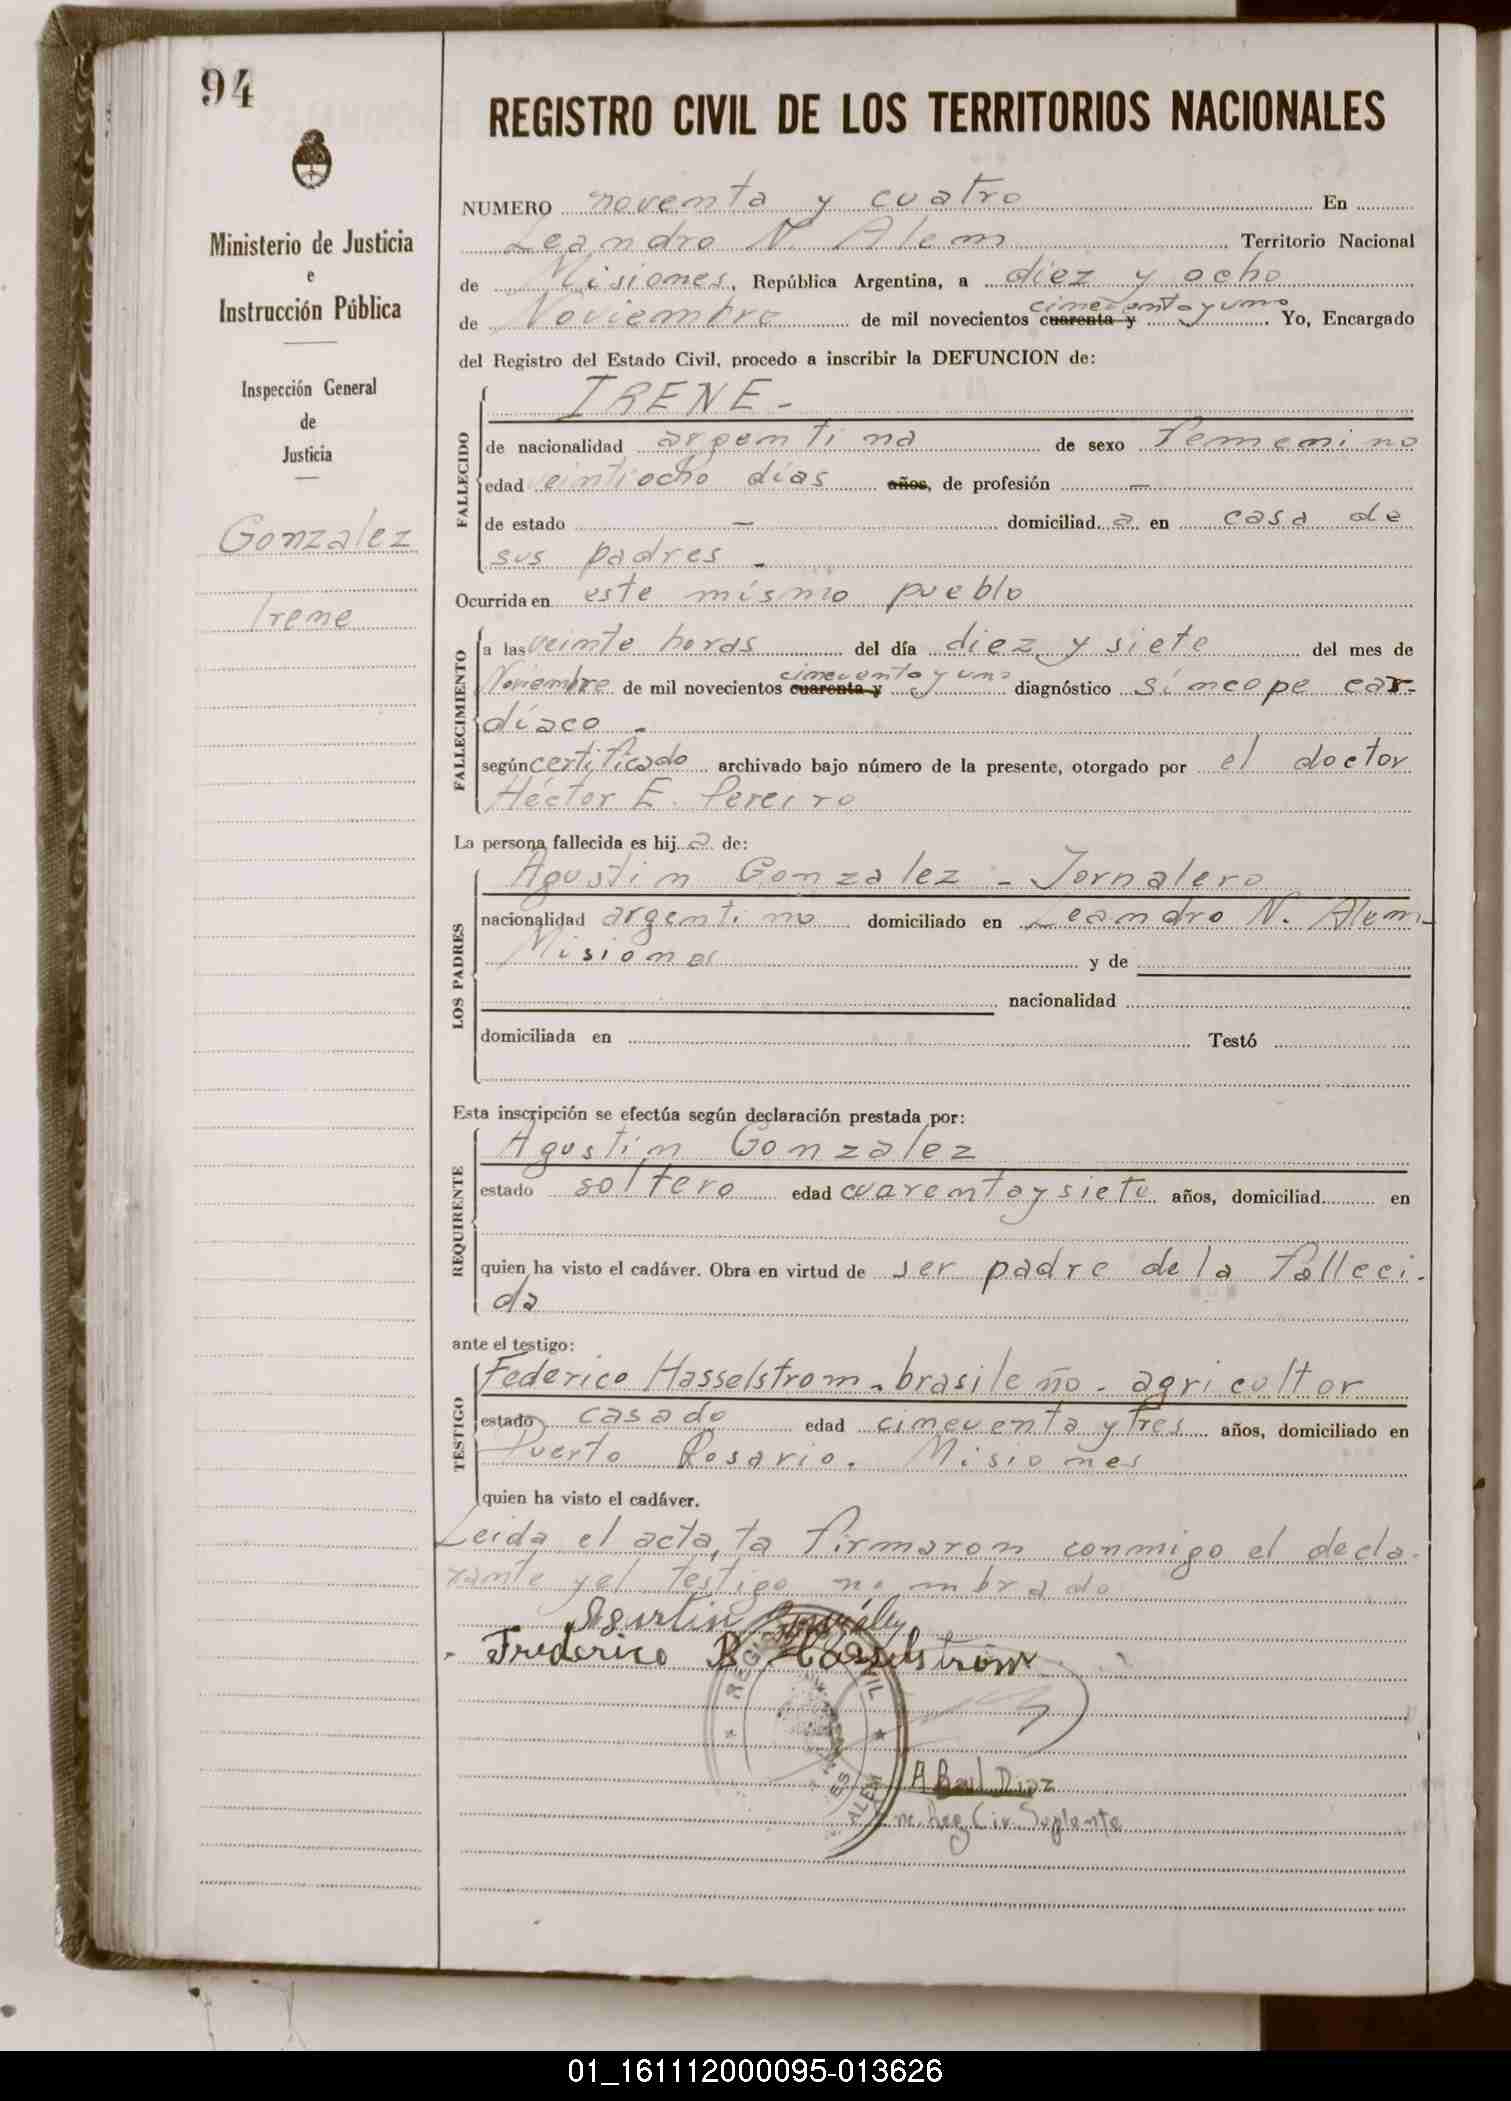 94
Ministerio de Justicia
e
Instrucción Pública
Inspección General
de
Justicia
Gonzalez
Irene
REGISTRO CIVIL DE LOS TERRITORIOS NACIONALES
NUMERO noventa y cuatro En
Leandro N. Alem Territorio Nacional
de Misiones, República Argentina, a diez y ocho
de Noviembre de mil novecientos cuarenta y cincuenta y uno Yo, Encargado
del Registro del Estado Civil, procedo a inscribir la DEFUNCION de:
FALLECIDO
IRENE -
de nacionalidad argentina de sexo femenino
edad veintiocho días años, de profesión —
de estado — domiciliad a en casa de
sus padres -
Ocurrida en este mismo pueblo
FALLECIMIENTO
a las veinte horas del día diez y siete del mes de
Noviembre de mil novecientos cuarenta y cincuenta y uno diagnóstico síncope car-
díaco -
según certificado archivado bajo número de la presente, otorgado por el doctor
Héctor E. Pereiro
La persona fallecida es hij a de:
LOS PADRES
Agustin Gonzalez - Jornalero
nacionalidad argentino domiciliado en Leandro N. Alem-
Misiones y de
nacionalidad
domiciliada en Testó
Esta inscripción se efectúa según declaración prestada por:
REQUIRENTE
Agustín Gonzalez
estado soltero edad cuarenta y siete años, domiciliad en
quien ha visto el cadáver. Obra en virtud de ser padre de la falleci-
da
ante el testigo:
TESTIGO
Federico Hasselstrom - brasileño - agricultor
estado casado edad cincuenta y tres años, domiciliado en
Puerto Rosario. Misiones
quien ha visto el cadáver.
Leída el acta, ta firmaron conmigo el decla-
rante y el testigo nombrado
Agustin González
Frederico B. Hasselström
REGISTRO CIVIL
ALEM
A Raul Diaz
Reg. Civ. Suplente
01_161112000095-013626